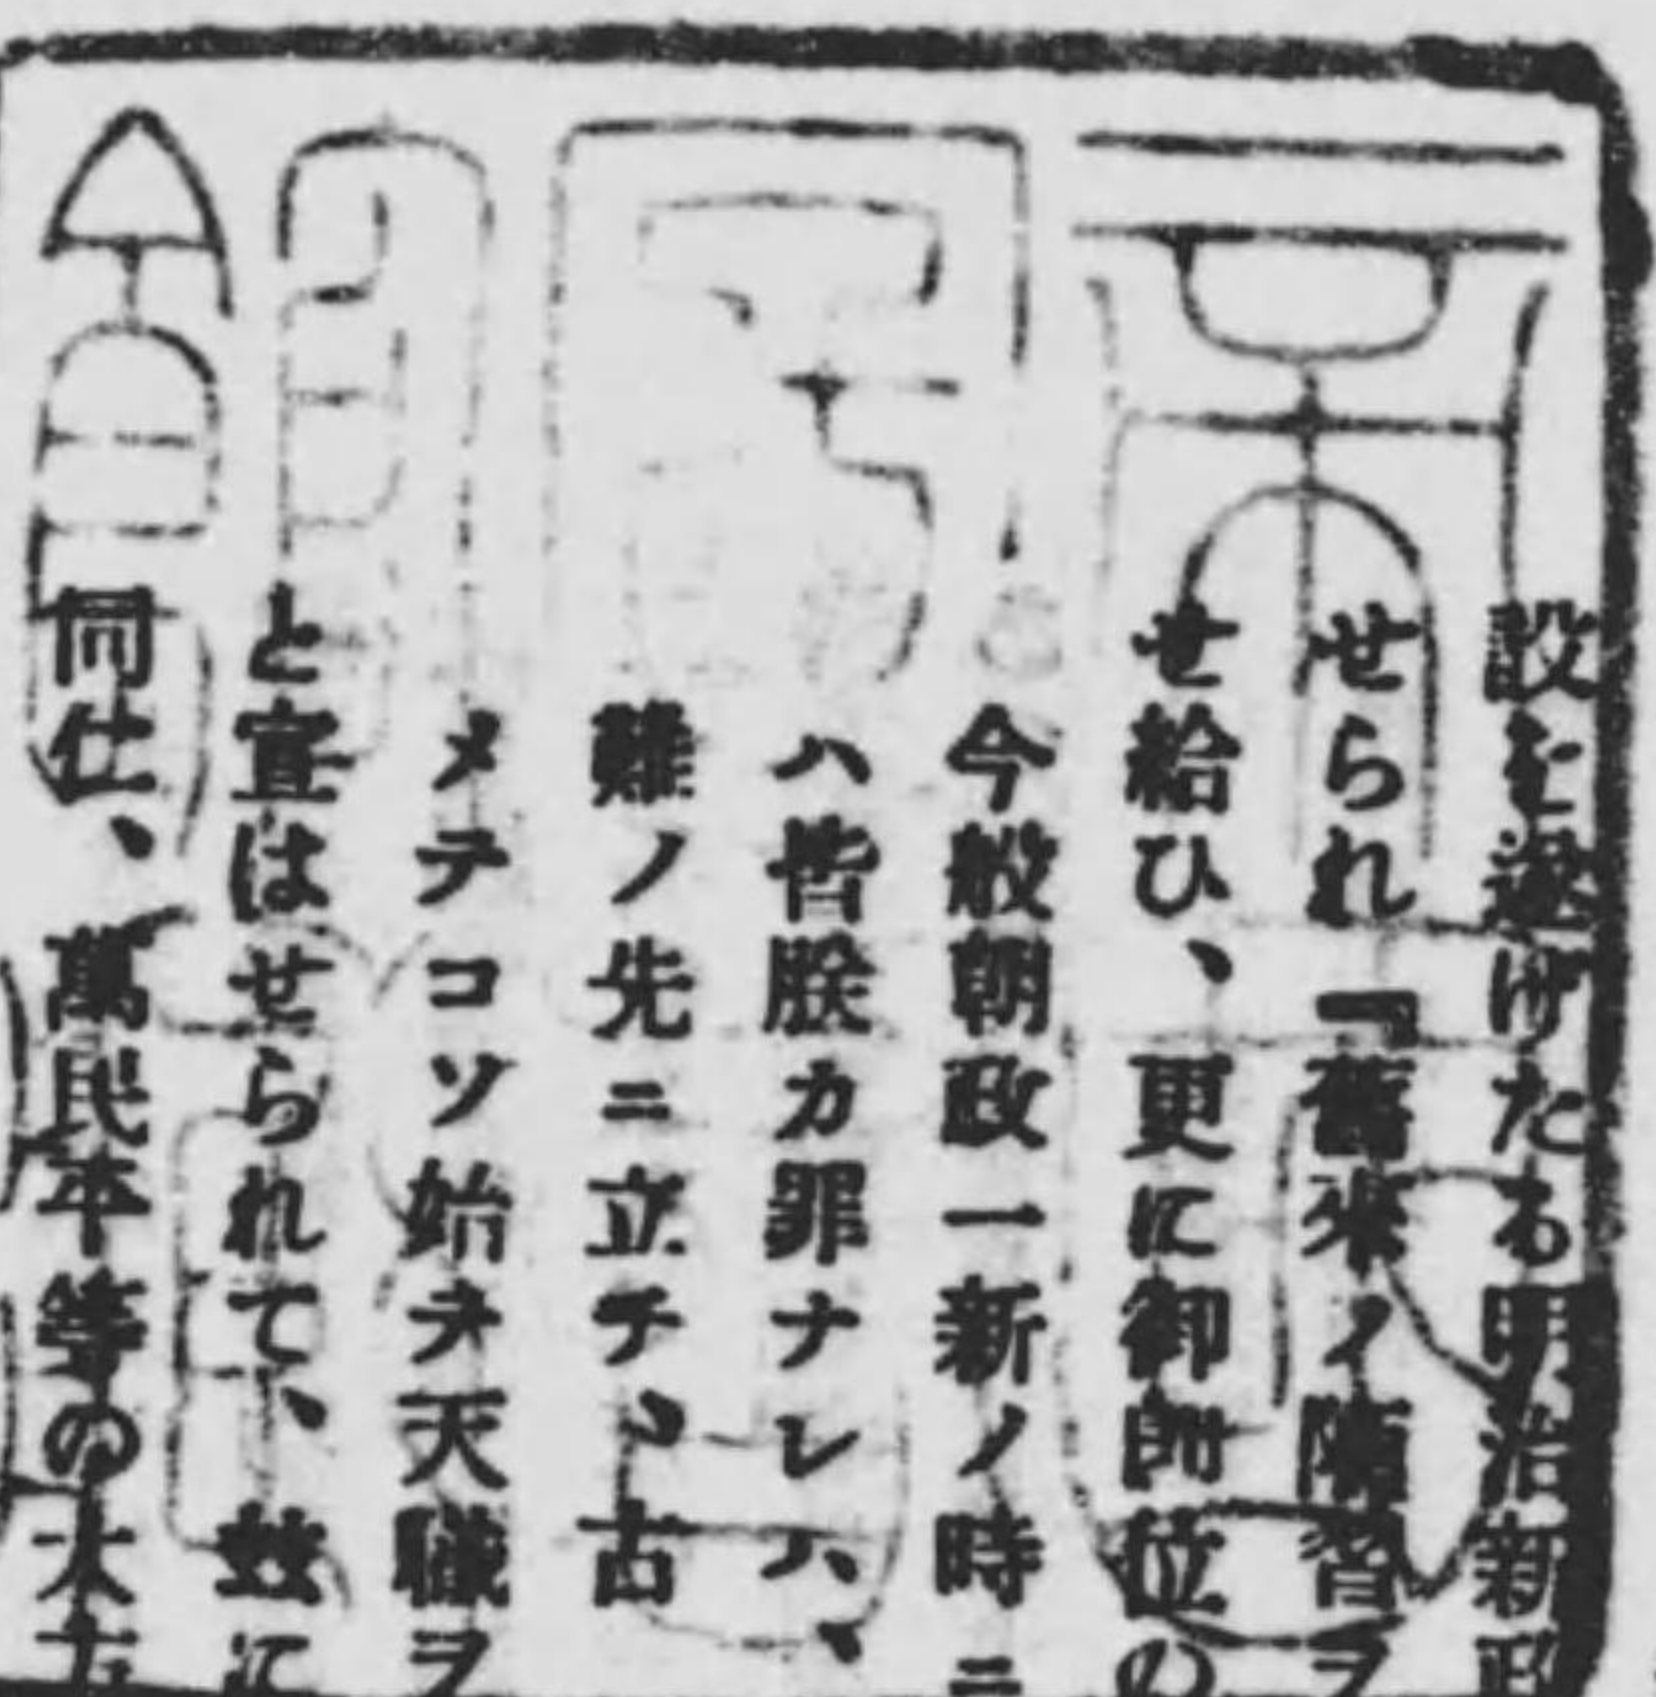 設を遂げたる明治新政
せられ『舊來ノ陋習ヲ
せ給ひ、更に御即位の
今般朝政一新ノ時ニ
ハ皆朕カ罪ナレハ、
難ノ先ニ立チ、古
メテコソ始テ天職ヲ
と宣はせられて、玆に
同仕、萬民平等の大